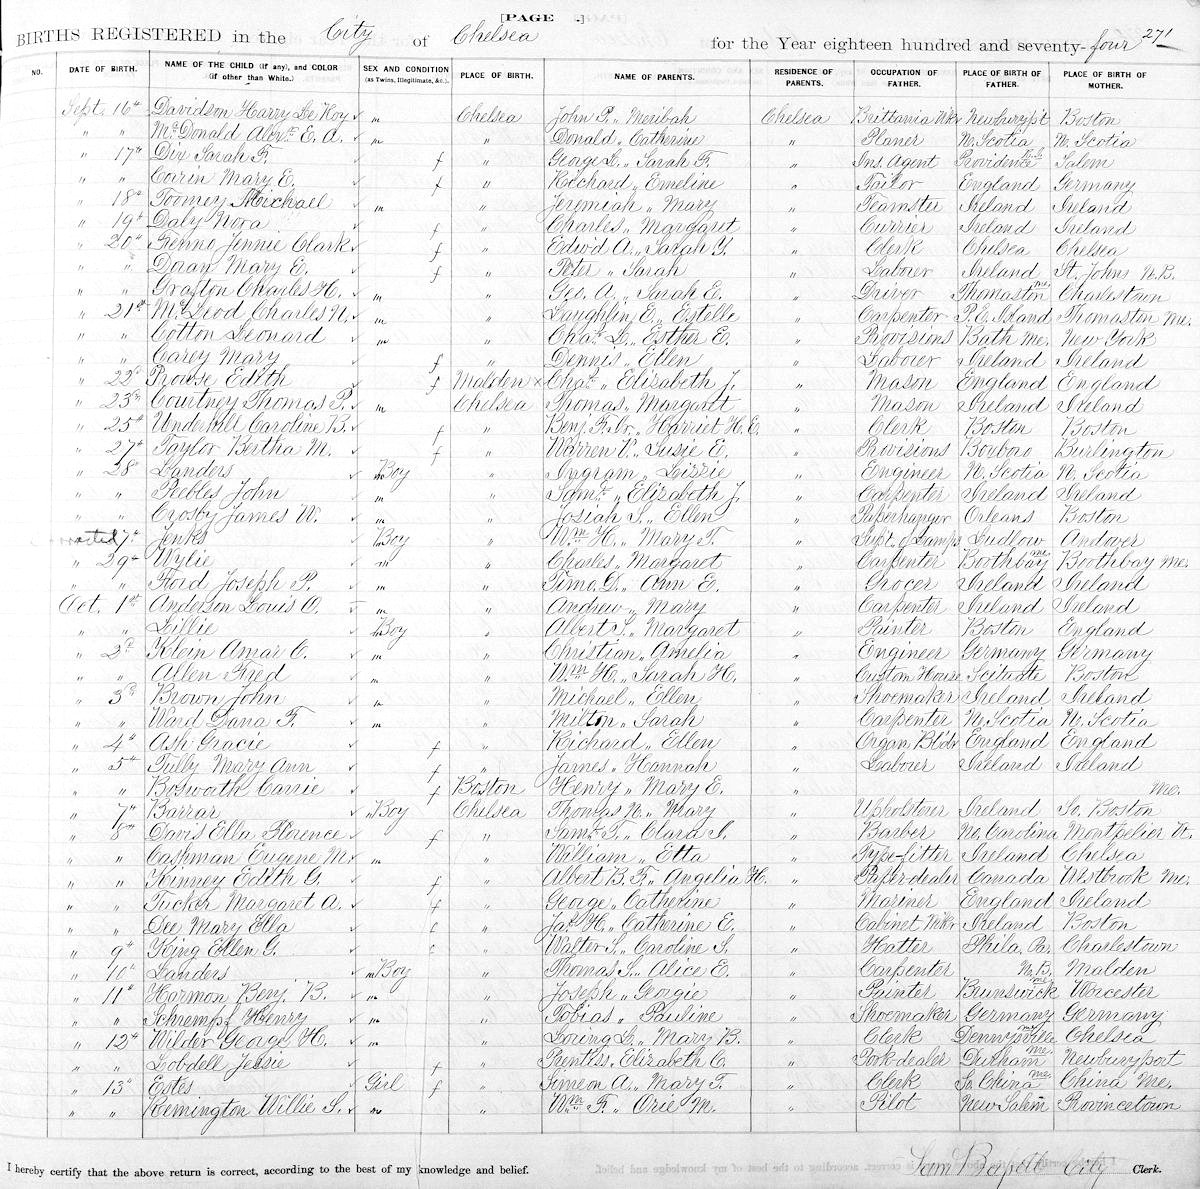 [PAGE .]
BIRTHS REGISTERED in the City of Chelsea for the Year eighteen hundred and seventy-four 271
NO. DATE OF BIRTH. NAME OF THE CHILD (if any), and COLOR (if other than White). SEX AND CONDITION (as Twins, Illegitimate, &c.) PLACE OF BIRTH. NAME OF PARENTS. RESIDENCE OF PARENTS. OCCUPATION OF FATHER. PLACE OF BIRTH OF FATHER. PLACE OF BIRTH OF MOTHER.
Sept. 16th Davidson Harry Le Roy ✓ m Chelsea John P. „ Meribah Chelsea Brittania Wkr Newburyp't Boston
„ „ McDonald Alexr. E. A. ✓ m „ Donald „ Catherine „ Planer N. Scotia N. Scotia
„ 17th Dix Sarah F. ✓ f „ George L. „ Sarah F. „ Ins. Agent Providence R.I. Salem
„ „ Carin Mary E. ✓ f „ Richard „ Emeline „ Tailor England Germany
„ 18th Toomey Michael ✓ m „ Jeremiah „ Mary „ Teamster Ireland Ireland
„ 19th Daly Nora ✓ f „ Charles „ Margaret „ Currier Ireland Ireland
„ 20th Fenno Jennie Clark ✓ f „ Edwd A. „ Sarah Y. „ Clerk Chelsea Chelsea
„ „ Doran Mary E. ✓ f „ Peter „ Sarah „ Laborer Ireland St. Johns N.B.
„ „ Grafton Charles H. ✓ m „ Geo. A. „ Sarah E. „ Driver Thomaston Me. Charlestown
„ 21st McLeod Charles N. ✓ m „ Laughlin E. „ Estelle „ Carpenter P.E. Island Thomaston Me.
„ „ Cotton Leonard ✓ m „ Chas. L. „ Esther E. „ Provisions Bath Me. New York
„ „ Carey Mary ✓ f „ Dennis „ Ellen „ Laborer Ireland Ireland
„ 22d Prowse Edith ✓ f Malden x Chas. „ Elizabeth J. „ Mason England England
„ 23d Courtney Thomas P. ✓ m Chelsea Thomas „ Margaret „ Mason Ireland Ireland
„ 25th Underhill Caroline B. ✓ f „ Benj. F. Jr. „ Harriet H. E. „ Clerk Boston Boston
„ 27th Taylor Bertha M. ✓ f „ Warren P. „ Susie E. „ Provisions Boxboro Burlington
„ 28th Landers ✓ m Boy „ Ingram „ Lizzie „ Engineer N. Scotia N. Scotia
„ „ Peebles John ✓ m „ Saml. „ Elizabeth J. „ Carpenter Ireland Ireland
„ „ Crosby James W. ✓ m „ Josiah S. „ Ellen „ Paperhanger Orleans Boston
7th Jenks ✓ m Boy „ Wm H. „ Mary F. „ Supt. of Lamps Ludlow Andover
„ 29th Wylie ✓ m „ Charles „ Margaret „ Carpenter Boothbay Me. Boothbay Me.
„ „ Ford Joseph P. ✓ m „ Timo. D. „ Ann E. „ Grocer Ireland Ireland
Oct. 1st Anderson Louis O. ✓ m „ Andrew „ Mary „ Carpenter Ireland Ireland
„ „ Lillie ✓ m Boy „ Albert S. „ Margaret „ Painter Boston England
„ 2d Klein Amar C. ✓ m „ Christian „ Amelia „ Engineer Germany Germany
„ „ Allen Fred ✓ m „ Wm H. „ Sarah H. „ Custom House Scituate Boston
„ 3d Brown John ✓ m „ Michael „ Ellen „ Shoemaker Ireland Ireland
„ „ Ward Dana F. ✓ m „ Milton „ Sarah „ Carpenter N. Scotia N. Scotia
„ 4th Ash Gracie ✓ f „ Richard „ Ellen „ Organ Bldr England England
„ 5th Tully Mary Ann ✓ f „ James „ Hannah „ Laborer Ireland Ireland
„ „ Bosworth Carrie ✓ f Boston Henry „ Mary E. „ Me.
„ 7th Barrar ✓ m Boy Chelsea Thomas N. „ Mary „ Upholsterer Ireland So. Boston
„ 8th Davis Ella Florence ✓ f „ Saml. G. „ Clara S. „ Barber No. Carolina Montpelier Vt.
„ „ Cashman Eugene M. ✓ m „ William „ Etta „ Type-fitter Ireland Chelsea
„ „ Kinney Edith G. ✓ f „ Albert B. F. „ Angelia H. „ Paper-dealer Canada Westbrook Me.
„ „ Tucker Margaret A. ✓ f „ George „ Catherine „ Mariner England Ireland
„ „ Dee Mary Ella ✓ f „ Jas. H. „ Catherine E. „ Cabinet Mkr Ireland Boston
„ 9th King Ellen G. ✓ f „ Walter S. „ Caroline S. „ Hatter Phila. Pa. Charlestown
„ 10th Landers ✓ m Boy „ Thomas S. „ Alice E. „ Carpenter N.B. Malden
„ 11th Harmon Benj. B. ✓ m „ Joseph „ Georgie „ Painter Brunswick Me. Worcester
„ „ Schrempf Henry ✓ m „ Tobias „ Pauline „ Shoemaker Germany Germany
„ 12th Wilder George H. ✓ m „ Loring L. „ Mary B. „ Clerk Dennysville Me. Chelsea
„ „ Lobdell Jessie ✓ f „ Prentiss „ Elizabeth C. „ Book-dealer Durham Me. Newburyport
„ 13th Estes ✓ Girl f „ Simeon A. „ Mary F. „ Clerk So. China Me. China Me.
„ „ Remington Willie S. ✓ m „ Wm F. „ Orie M. „ Pilot New Salem Provincetown
I hereby certify that the above return is correct, according to the best of my knowledge and belief. Sam Bassett City Clerk.